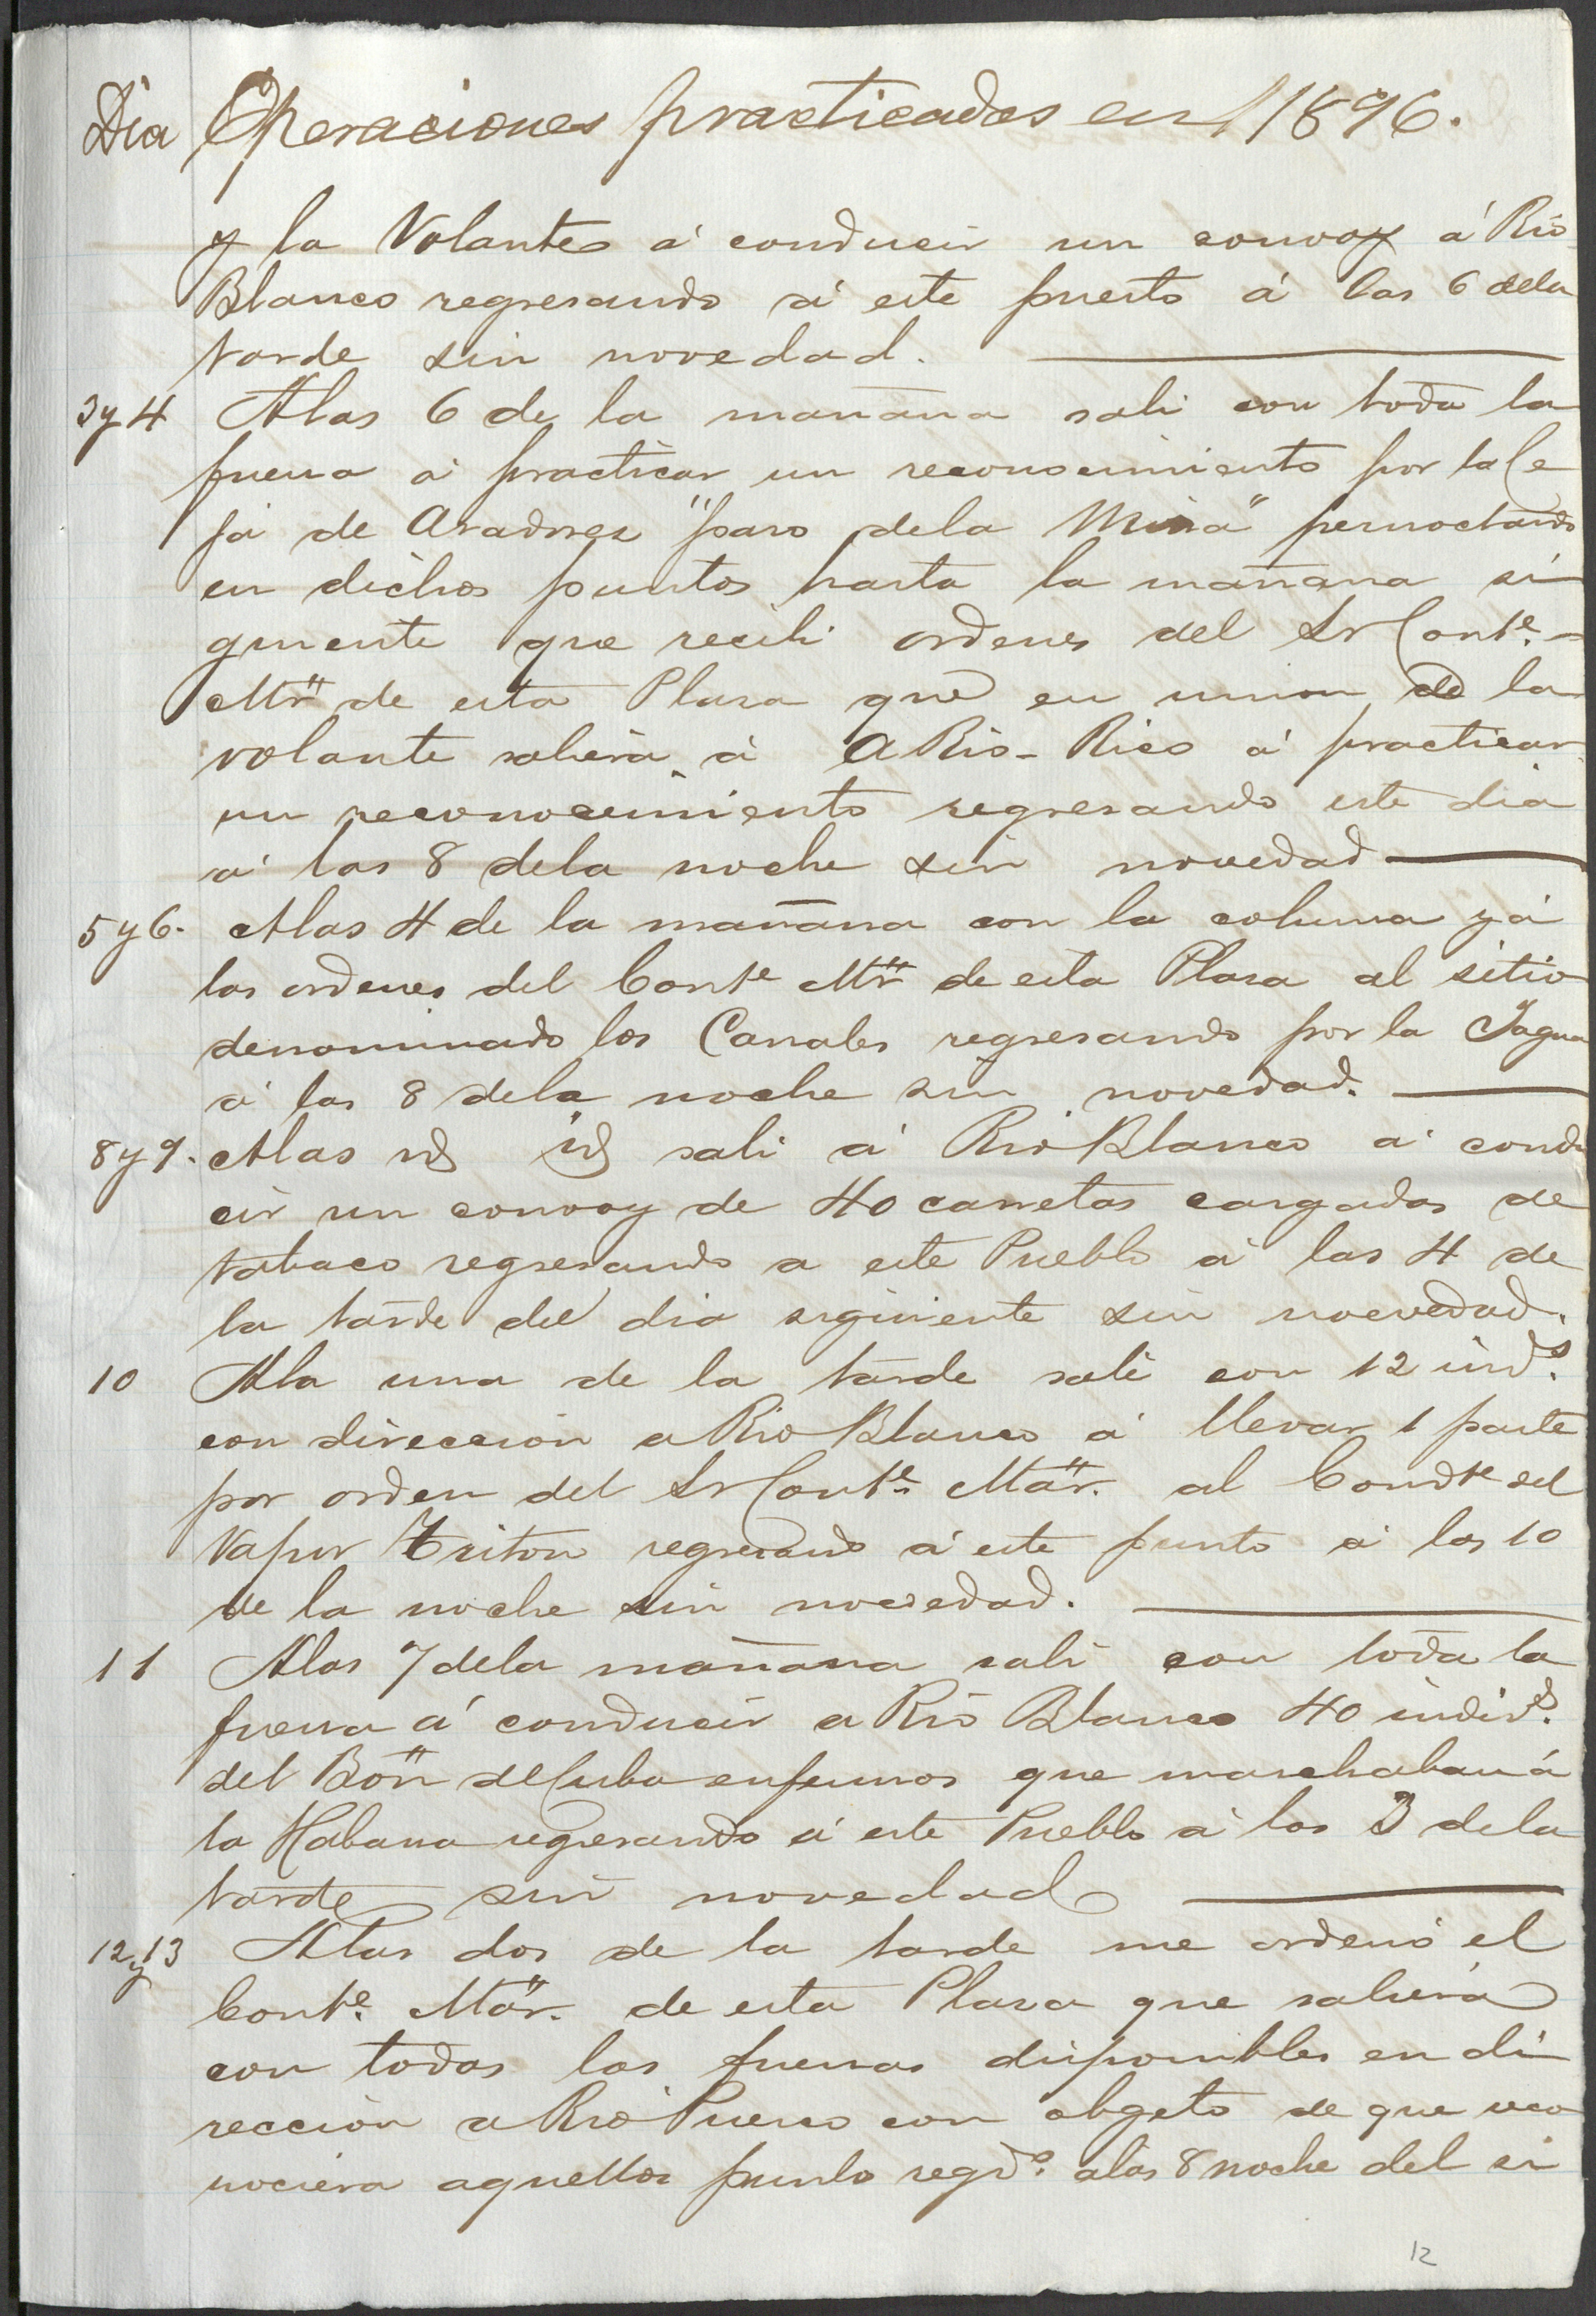 Dia Operaciones practicadas en 1896.
y la Volante á conducir un convoy á Rio
Blanco regresando á este puesto á las 6 dela
tarde sin novedad.
3y4 Alas 6 de la mañana sali con toda la
fuerza á practicar un reconocimiento por la Ce
ja de Aradores "paso dela Mina" pernoctando
en dichos puntos hasta la mañana si
guiente que recibi ordenes del Sr Comte.
Mtr de esta Plaza que en union de la
volante saliera á A Rio-Rico á practicar
un reconocimiento regresando este dia
á las 8 dela noche sin novedad
5y6. Alas 4 de la mañana con la coluna y á
las ordenes del Comte Mtr de esta Plaza al sitio
denominado los Canales regresando por la Jagua
á las 8 dela noche sin novedad.
8y9. Alas id id sali á Rio Blanco á condu
cir un convoy de 40 carretas cargadas de
tabaco regresando a este Pueblo á las 4 de
la tarde del dia siguiente sin novedad.
10 Ala una de la tarde sali con 12 inds.
con direccion a Rio Blanco á llevar 1 parte
por orden del Sr Comte. Mtar. al Comdte del
Vapor Triton regresando á este punto á las 10
de la noche sin novedad.
11 Alas 7 dela mañana sali con toda la
fuerza á conducir a Rio Blanco 40 individs.
del Bon de Cuba enfermos que marchaban á
la Habana regresando á este Pueblo á las 3 dela
tarde sin novedad
12y13 Alas dos de la tarde me ordenó el
Comte. Mtar. de esta Plaza que saliera
con todas las fuerzas disponibles en di
reccion a Rio Puerco con obgeto de que reco
nociera aquellos punto regdo. alas 8 noche del si
12